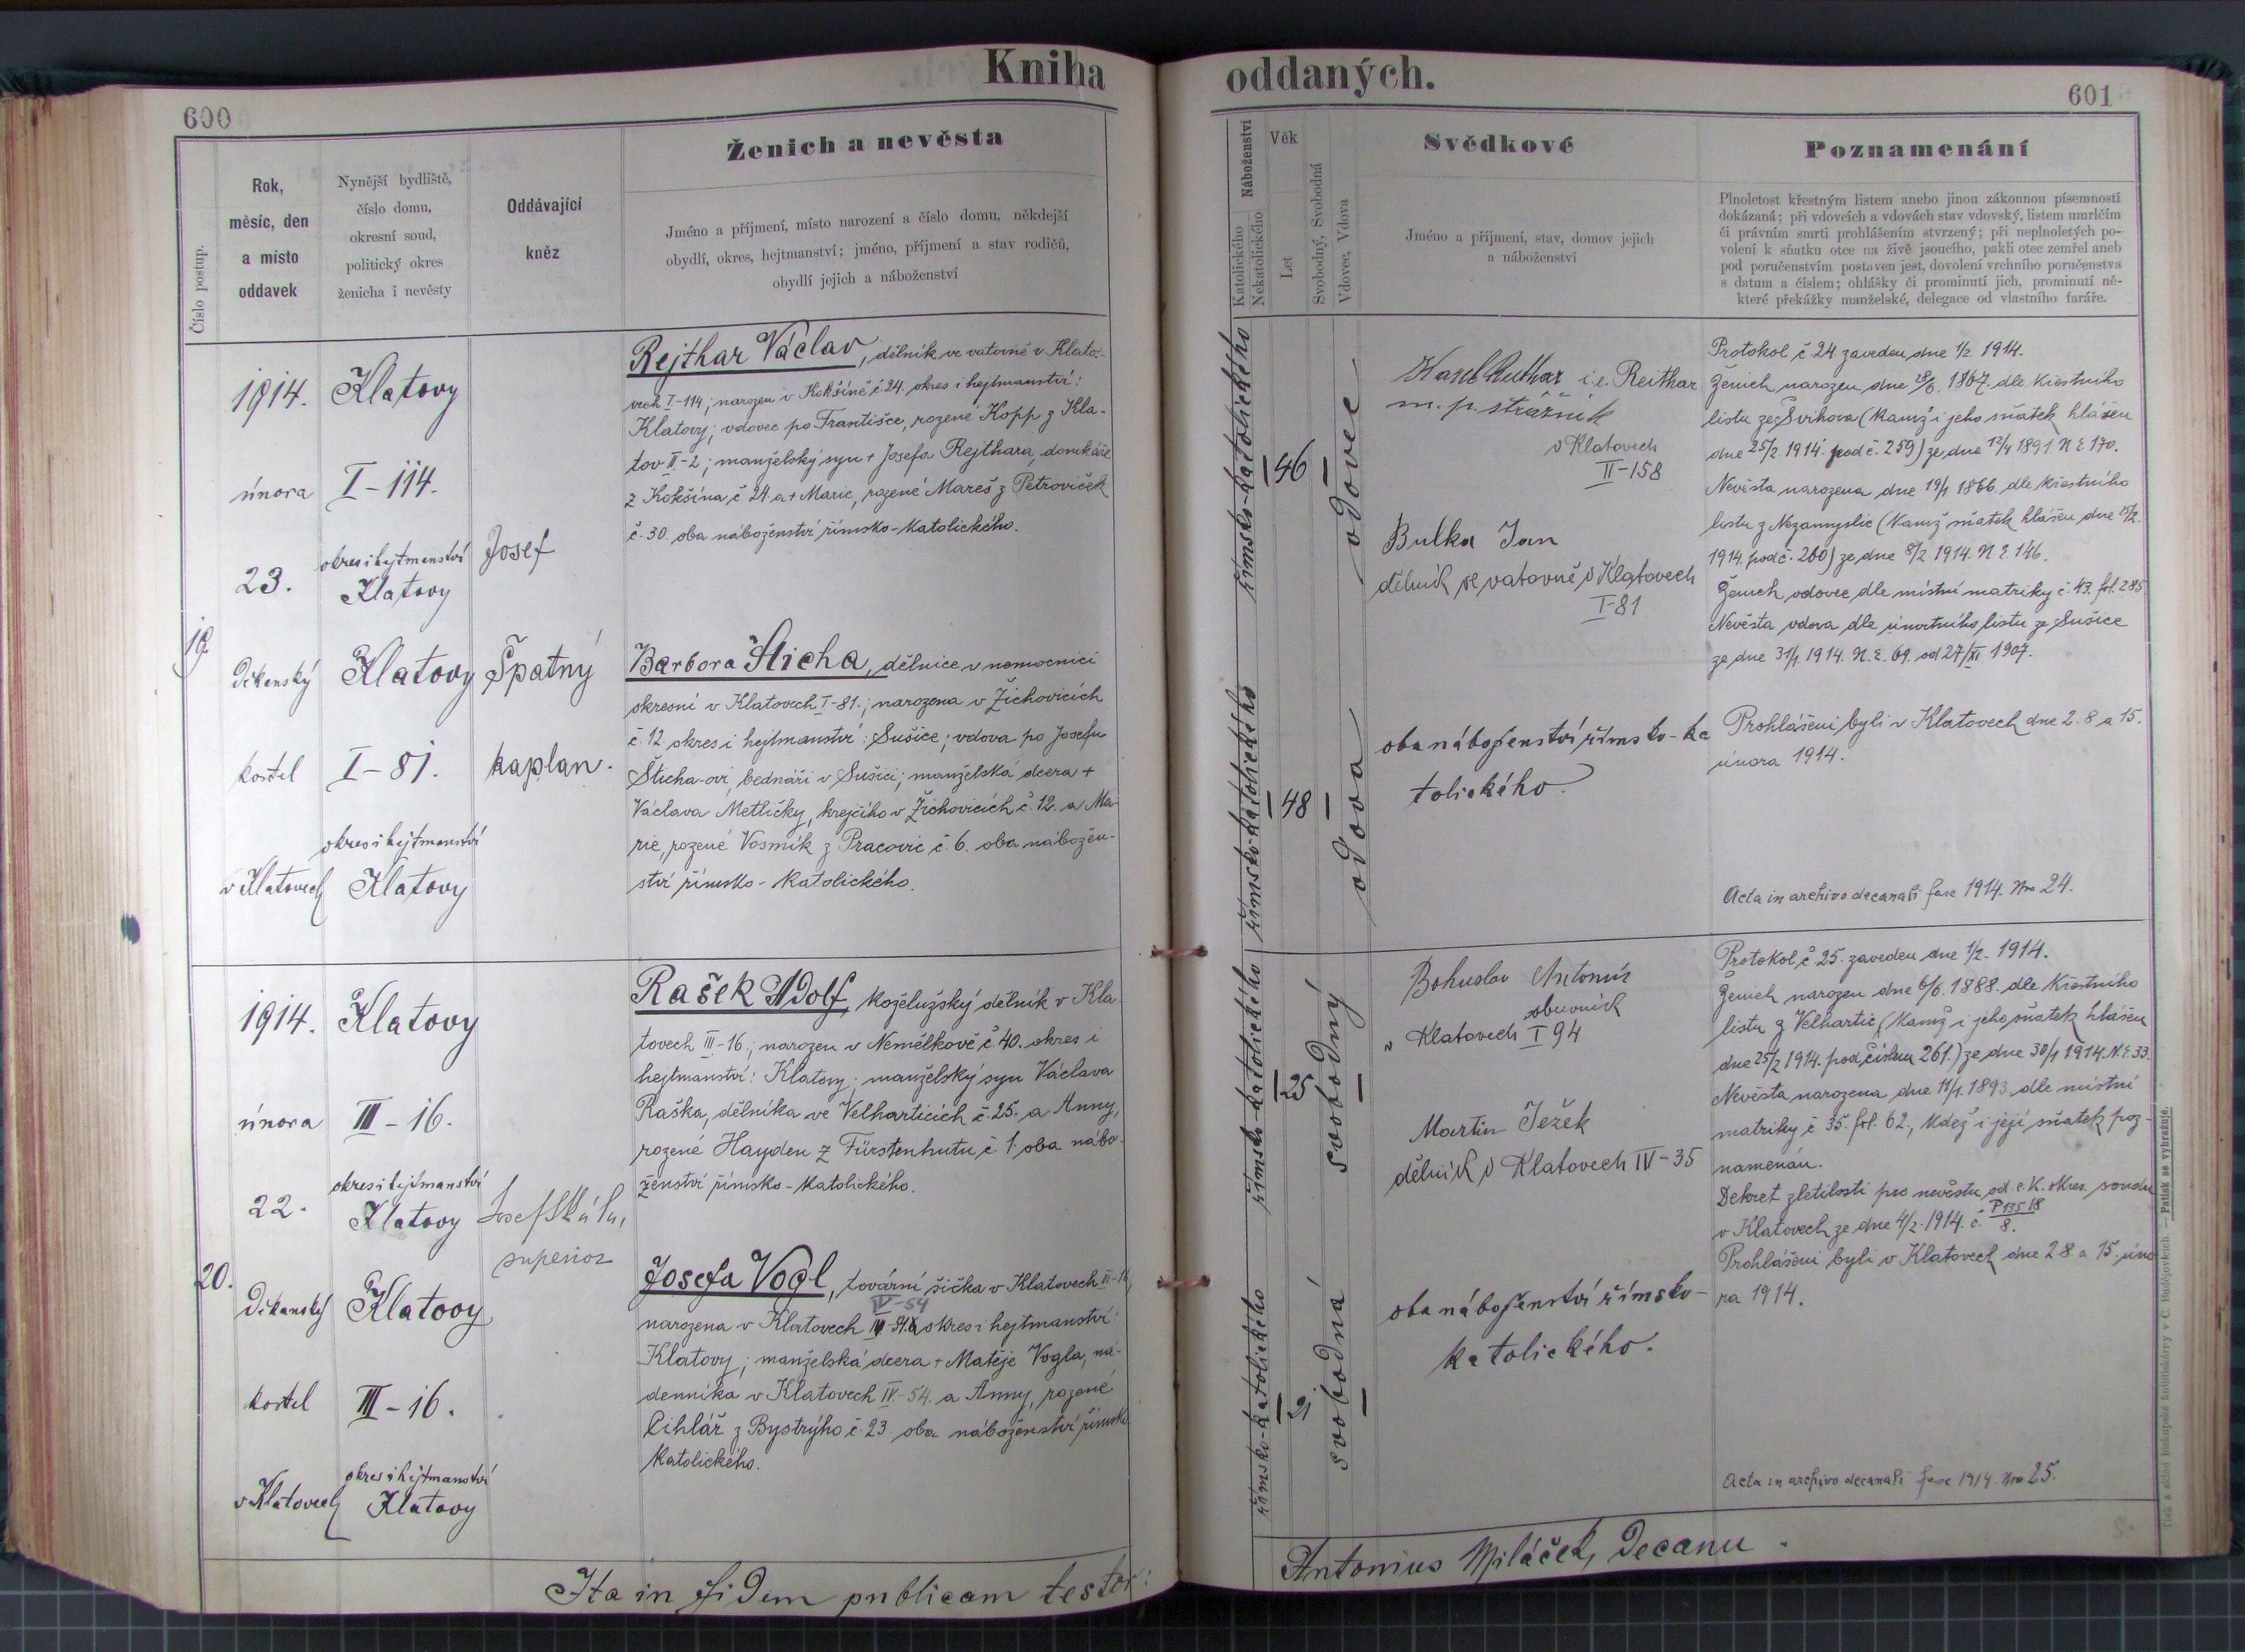 Kniha oddaných.
600
601
Číslo postup.
Rok,
měsíc, den
a místo
oddavek
Nynější bydliště,
číslo domu,
okresní soud,
politický okres
ženicha i nevěsty
Oddávající
kněz
Ženich a nevěsta
Jméno a příjmení, místo narození a číslo domu, někdejší
obydlí, okres, hejtmanství; jméno, příjmení a stav rodičů,
obydlí jejich a náboženství
Náboženství
Katolického
Nekatolického
Věk
Let
Svobodný, Svobodná
Vdovec, Vdova
Svědkové
Jméno a příjmení, stav, domov jejich
a náboženství
Poznamenání
Plnoletost křestným listem anebo jinou zákonnou písemností
dokázaná; při vdovcích a vdovách stav vdovský, listem umrlčím
či právním smrti prohlášením stvrzený; při neplnoletých po-
volení k sňatku otce na živě jsoucího, pakli otec zemřel aneb
pod poručenstvím postaven jest, dovolení vrchního poručenstva
s datum a číslem; ohlášky či prominutí jich, prominutí ně-
které překážky manželské, delegace od vlastního faráře.
19.
1914.
února
23.
děkanský
kostel
v Klatovech
Klatovy
I-114.
okres i hejtmanství
Klatovy
Klatovy
I-81.
okres i hejtmanství
Klatovy
Josef
Špatný
kaplan.
Rejthar Václav, dělník ve vatovně v Klato-
vech I-114; narozen v Kokšíně č 24. okres i hejtmanství:
Klatovy; vdovec po Františce, rozené Kopp z Kla-
tov II-2; manželský syn + Josefa Rejthara, domkáře
z Kokšína č 24. a + Marie, rozené Mareš z Petroviček
č. 30. oba náboženství římsko-katolického.
Barbora Sticha, dělnice v nemocnici
okresní v Klatovech I-81.; narozena v Žichovicích
č. 12 okres i hejtmanství: Sušice; vdova po Josefu
Sticha-ovi, bednáři v Sušici; manželská dcera +
Václava Metličky, krejčího v Žichovicích č. 12. a Ma-
rie, rozené Vosmík z Pracovic č. 6. oba nábožen-
ství římsko-katolického.
římsko-katolického
46
vdovec
římsko-katolického
48
vdova
Karel i.e. Reithar
m. p. strážník
v Klatovech
II-158
Bulka Jan
dělník ve vatovně v Klatovech
I-81
oba náboženství římsko-ka
tolického.
Protokol č 24. zaveden dne 1/2. 1914.
Ženich narozen dne 28/6. 1867. dle křestního
listu ze Švihova (kamž i jeho sňatek hlášen
dne 25/2. 1914. pod č. 259) ze dne 12/4 1891 N E 170.
Nevěsta narozena dne 19/1 1866. dle křestního
listu z Nezamyslic (kamž sňatek hlášen dne 25/2.
1914. pod č. 260) ze dne 8/2 1914. N E. 146.
Ženich vdovec dle místní matriky č. 43. fol. 285.
Nevěsta vdova dle úmrtního listu ze Sušice
ze dne 31/1. 1914. N. E. 69. od 27/XI 1907.
Prohlášeni byli v Klatovech dne 2. 8 a 15.
února 1914.
Acta in archivo decanali fasc 1914. Nro 24.
20.
1914.
února
22.
děkanský
kostel
v Klatovech
Klatovy
III-16.
okres i hejtmanství
Klatovy
Klatovy
III-16.
okres i hejtmanství
Klatovy
Josef Skála,
superior
Rašek Adolf, koželužský dělník v Kla-
tovech III-16.; narozen v Nemělkově č. 40. okres i
hejtmanství: Klatovy; manželský syn Václava
Raška, dělníka ve Velharticích č. 25. a Anny,
rozené Hayden z Fürstenhutu č 1. oba nábo-
ženství římsko-katolického.
Josefa Vogl, tovární šička v Klatovech III-16,
IV-54
narozena v Klatovech okres i hejtmanství:
Klatovy; manželská dcera + Matěje Vogla, ná-
denníka v Klatovech IV-54. a Anny, rozené
Cihlář z Bystrýho č. 23. oba náboženství římsko
katolického.
římsko-katolického
25
svobodný
římsko-katolického
21
svobodná
Bohuslav Antonín
obuvník
v Klatovech I 94
Martin Ježek
dělník v Klatovech IV-35
oba náboženství římsko-
katolického.
Protokol č 25. zaveden dne 1/2. 1914.
Ženich narozen dne 6/6. 1888. dle křestního
listu z Velhartic (kamž i jeho sňatek hlášen
dne 25/2 1914. pod číslem 261.) ze dne 30/1 1914. N. E 33.
Nevěsta narozena dne 11/1. 1893. dle místní
matriky č 35. fol. 62., kdež i její sňatek poz-
namenán.
Dekret zletilosti pro nevěstu od c. k. okres. soudu
v Klatovech ze dne 4/2. 1914. č. P 135 18/8.
Prohlášeni byli v Klatovech dne 2 8. a 15. úno-
ra 1914.
Acta in archivo decanali fasc 1914. Nro 25.
Ita in fidem publicam testor:
Antonius Miláček, Decanu.
Tisk a sklad biskupské knihtiskárny v Č. Budějovicích. — Patisk se vyhražuje.